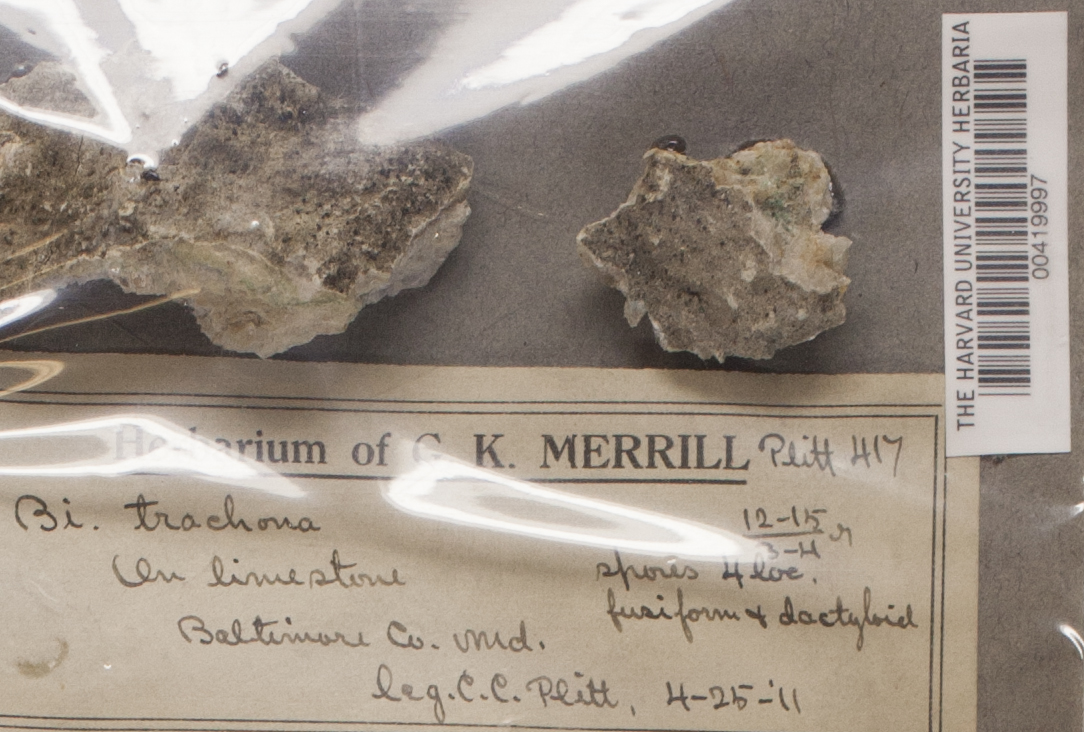 THE HARVARD UNIVERSITY HERBARIA
00419997
Herbarium of G. K. MERRILL Plitt 417
Bi. trachona
12-15
3-4 μ
On limestone
spores 4 loc.
fusiform & dactyloid
Baltimore Co. Md.
leg. C.C. Plitt, 4-25-'11